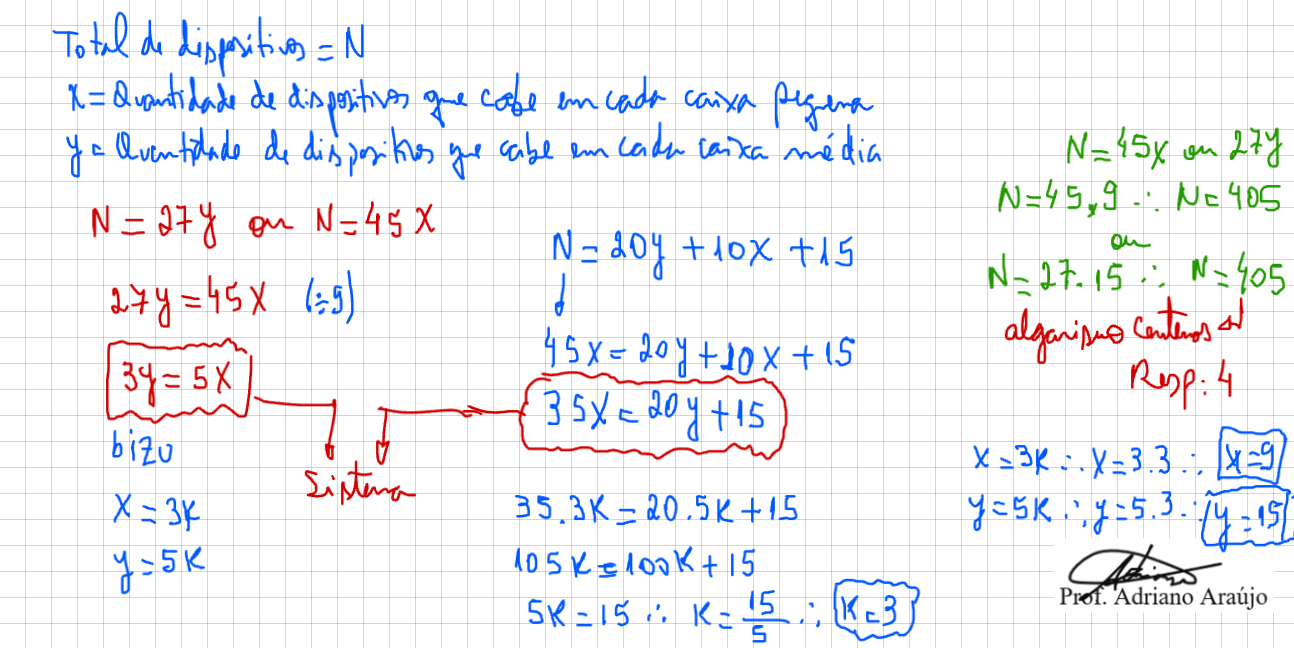 Total de dispositivos = N
x = Quantidade de dispositivos que cabe em cada caixa pequena
y = Quantidade de dispositivos que cabe em cada caixa média
N = 27y ou N = 45x
27y = 45x (÷9)
3y = 5x
bizu
x = 3k
y = 5k
Sistema
N = 20y + 10x + 15
45x = 20y + 10x + 15
35x = 20y + 15
35.3k = 20.5k + 15
105k = 100k + 15
5k = 15 ∴ k = 15/5 ∴ k = 3
N = 45x ou 27y
N = 45.9 ∴ N = 405
ou
N = 27.15 ∴ N = 405
algarismo centenas
Resp: 4
x = 3k ∴ x = 3.3 ∴ x = 9
y = 5k ∴ y = 5.3 ∴ y = 15
Prof. Adriano Araújo